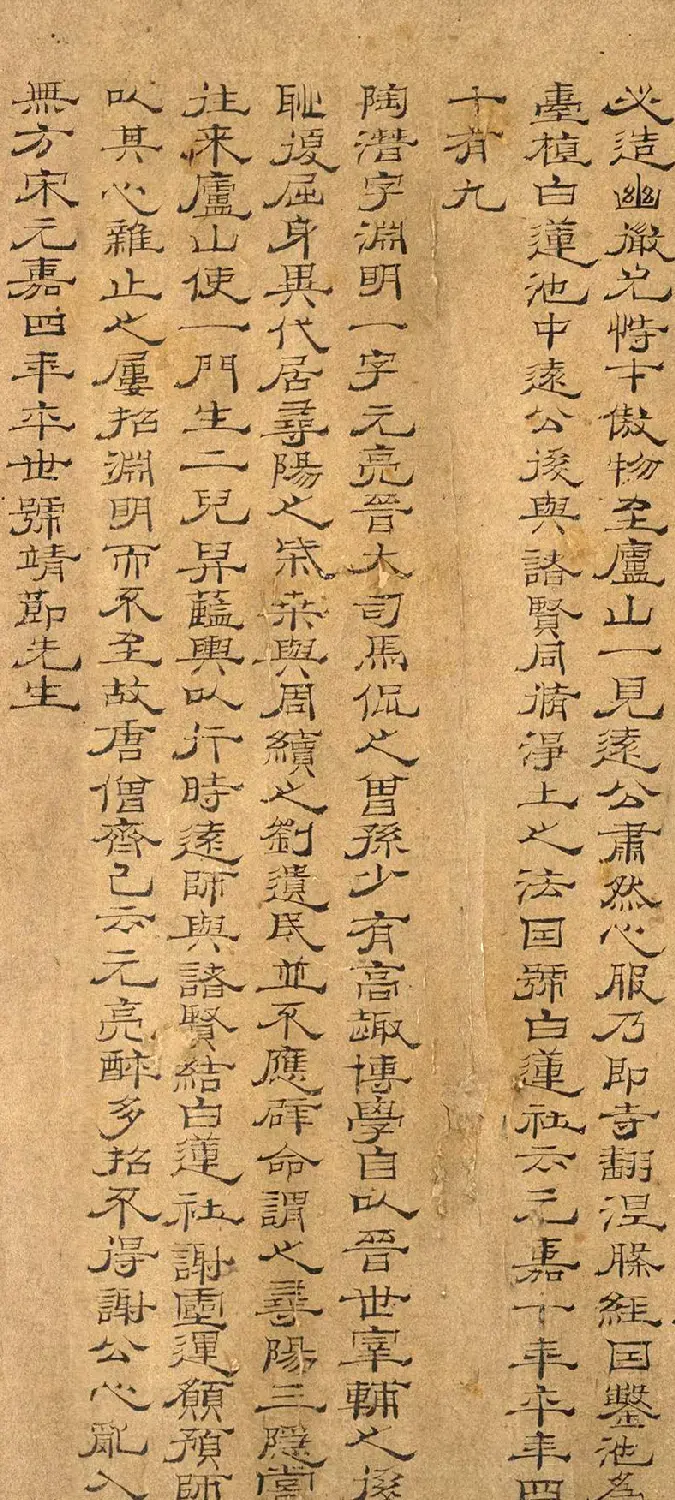 必造幽微尤恃才傲物至廬山一見遠公肅然心服乃即寺翻涅槃經因鑿池為
臺植白蓮池中遠公後與諸賢同脩淨土之法因號白蓮社云元嘉十年卒年四
十有九
陶潛字淵明一字元亮晉大司馬侃之曾孫少有高趣博學自以晉世宰輔之後
恥復屈身異代居尋陽之柴桑與周續之劉遺民並不應辟命謂之尋陽三隱嘗
往来廬山使一門生二兒舁藍輿以行時遠師與諸賢結白蓮社謝靈運願預師
以其心雜止之屢招淵明而不至故唐僧齊己云元亮醉多招不得謝公心亂入
無方宋元嘉四年卒世號靖節先生